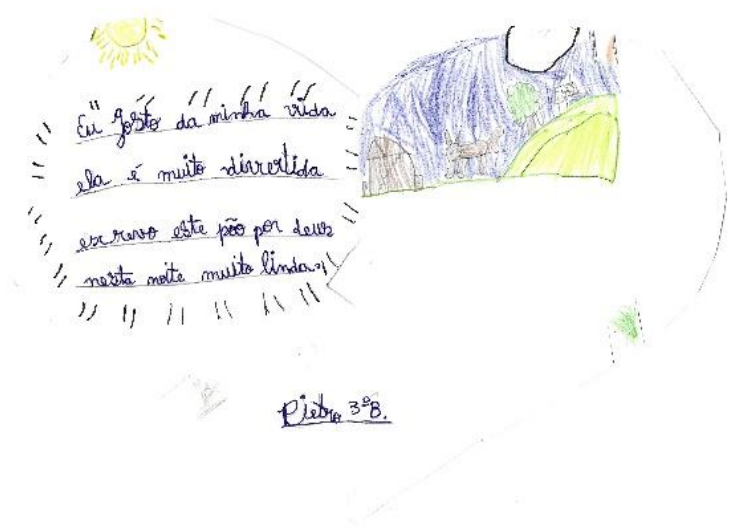 Eu gosto da minha vida
ela é muito divertida
escrevo este pão por deus
nesta noite muito linda.
Pietro 3ºB.